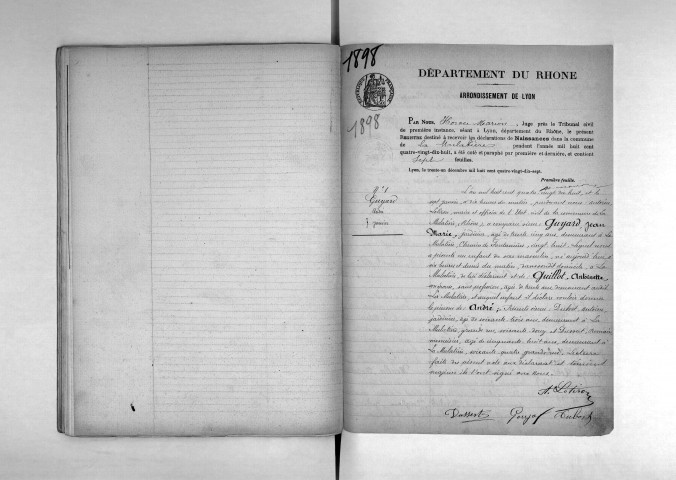 1898
DÉPARTEMENT DU RHONE
ARRONDISSEMENT DE LYON
1898
PAR NOUS, Marion, Juge près le Tribunal civil
de première instance, séant à Lyon, département du Rhône, le présent
REGISTRE destiné à recevoir les déclarations de Naissances dans la commune
de La Mulatière pendant l'année mil huit cent
quatre-vingt-dix-huit, a été coté et paraphé par première et dernière, et contient
Sept feuilles.
Lyon, le trente-un décembre mil huit cent quatre-vingt-dix-sept.
Première feuille.
N° 1
Guyard
André
7 janvier
L'an mil huit cent quatre vingt dix huit, et le
sept janvier, à dix heures du matin, pardevant nous Antoine
Lotiron, maire et officier de l'Etat civil de la commune de La
Mulatière, Rhône, a comparu sieur Guyard, Jean
Marie, jardinier, âgé de trente cinq ans, demeurant à La
Mulatière, Chemin de Fontanières, vingt huit, lequel nous
a présenté un enfant du sexe masculin, né aujourd'hui à
six heures et demie du matin, domicile à La
Mulatière, de lui déclarant et de Guillot, Antoinette,
sans profession, âgée de trente ans demeurant
La Mulatière, et auquel enfant il déclare vouloir donner
le prénom de André, Présents sieurs Dubost, Antoine,
jardinier, âgé de soixante trois ans, demeurant à La
Mulatière, grande rue, soixante onze, et Dussert, Romain
menuisier, âgé de cinquante huit ans, demeurant à
La Mulatière, soixante quatre grande rue. Lecture
faite du présent acte aux déclarant et témoins
ils l'ont signé avec nous.
A. Lotiron
Dussert Guyard Dubost